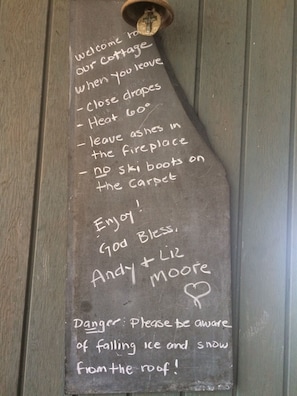 welcome to
our cottage
when you leave
- close drapes
- Heat 60°
- leave ashes in
the fireplace
- no ski boots on
the carpet
Enjoy!
God Bless,
Andy + Liz
Moore
Danger: Please be aware
of falling ice and snow
from the roof!